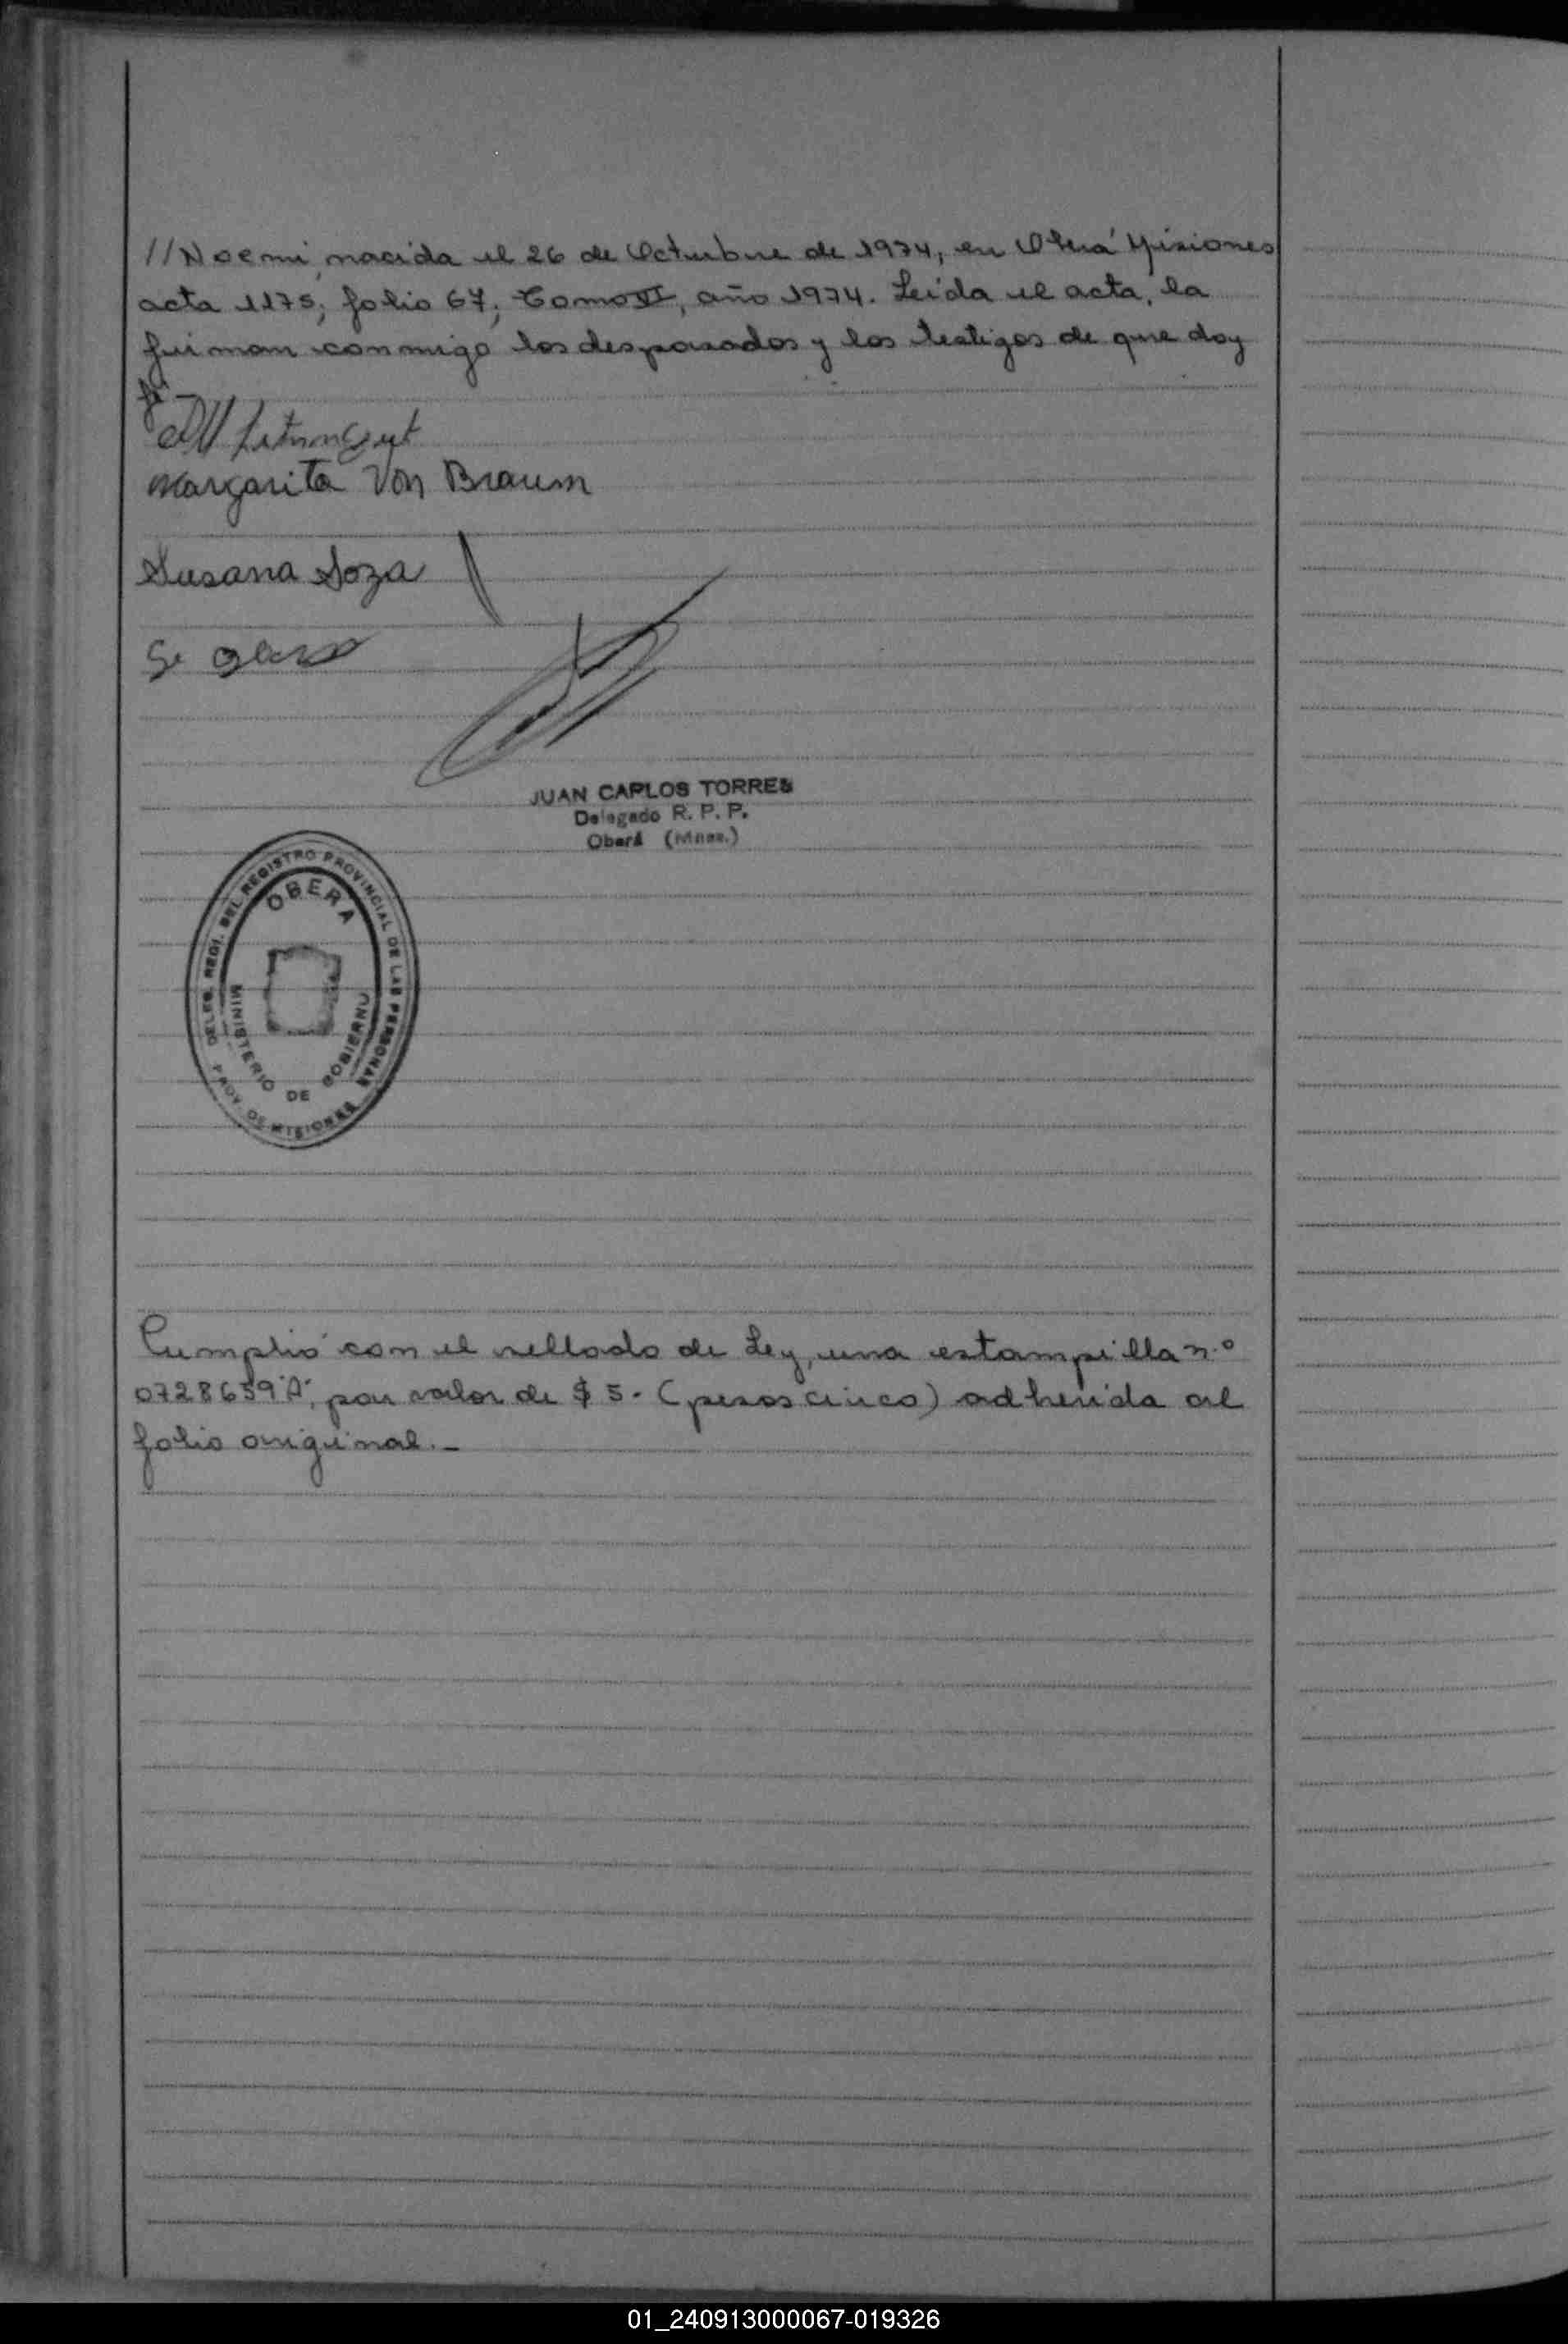 //Noemi, nacida el 26 de Octubre de 1974, en Oberá Misiones
acta 1175, folio 67, Tomo VI, año 1974. Leída el acta, la
firman conmigo los desposados y los testigos de que doy
fé
Margarita Von Braum
Susana Soza
JUAN CARLOS TORRES
Delegado R. P. P.
Oberá (Mnes.)
DELEG. REGI. DEL REGISTRO PROVINCIAL DE LAS PERSONAS
OBERA
MINISTERIO DE GOBIERNO
PROV. DE MISIONES
Cumplió con el sellado de Ley, una estampilla n.º
0728659"A", por valor de $ 5.- (pesos cinco) adherida al
folio original.-
01_240913000067-019326